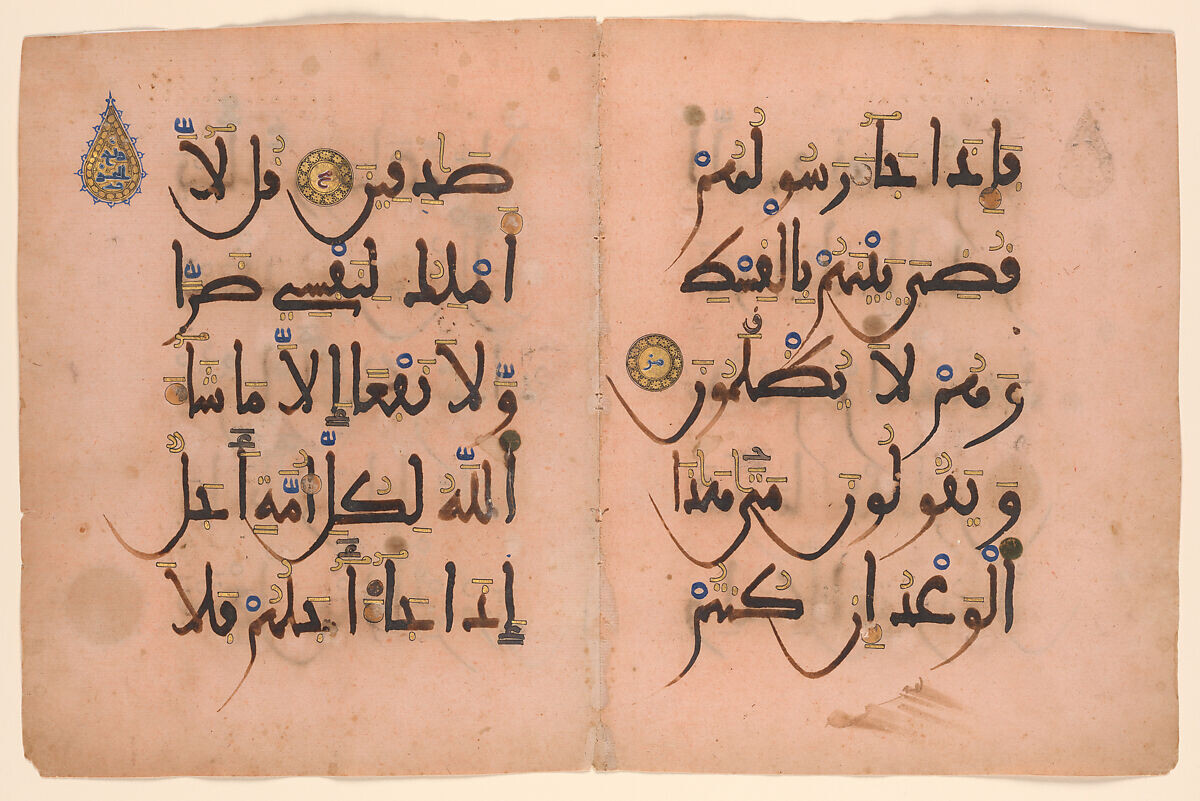 فإذا جاء رسولهم
قضي بينهم بالقسط
وهم لا يظلمون مز
ويقولون متى هذا
الوعد إن كنتم
صدقين مح قل لا
أملك لنفسي ضرا
ولا نفعا إلا ما شاء
الله لكل أمة أجل
إذا جاء أجلهم فلا